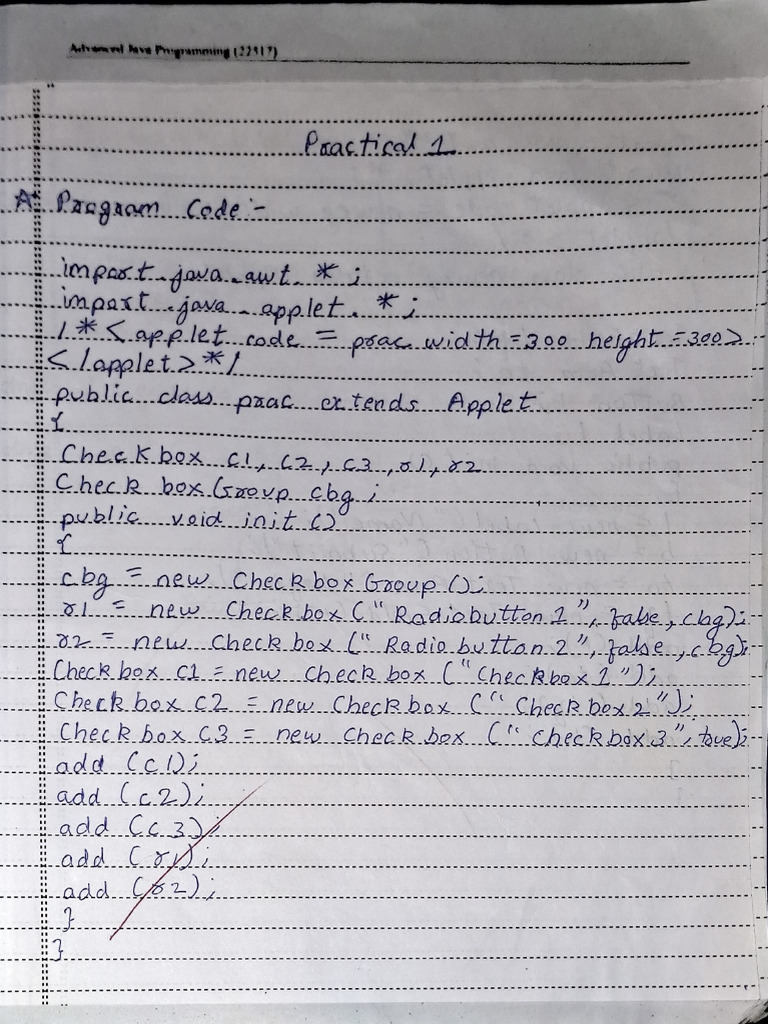 Advanced Java Programming (22517)
Practical 1
A* Program Code :-
import java.awt. * ;
import java.applet. * ;
/*<applet code = prac width=300 height=300>
</applet>*/
public class prac extends Applet
{
Checkbox c1, c2, c3, r1, r2
CheckboxGroup cbg ;
public void init ()
{
cbg = new CheckboxGroup ();
r1 = new Checkbox ("Radiobutton 1", false, cbg);
r2 = new Checkbox ("Radio button 2", false, cbg);
Checkbox c1 = new Checkbox ("Checkbox 1");
Checkbox c2 = new Checkbox ("Checkbox 2");
Checkbox c3 = new Checkbox ("checkbox 3", true);
add (c1);
add (c2);
add (c3);
add (r1);
add (r2);
}
}